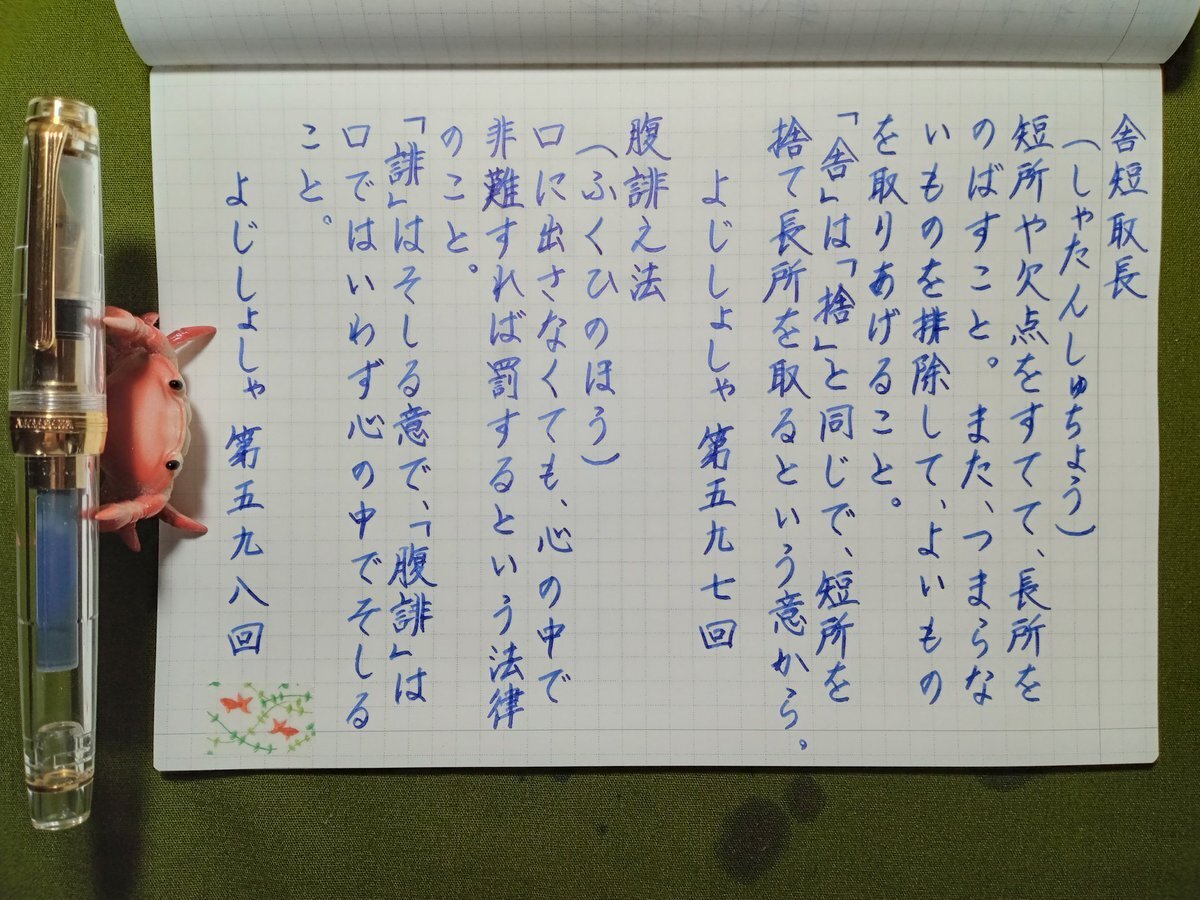 舎短取長
(しゃたんしゅちょう)
短所や欠点をすてて、長所を
のばすこと。また、つまらな
いものを排除して、よいもの
を取りあげること。
「舎」は「捨」と同じで、短所を
捨て長所を取るという意から。
よじしょしゃ 第五九七回
腹誹之法
(ふくひのほう)
口に出さなくても、心の中で
非難すれば罰するという法律
のこと。
「誹」はそしる意で、「腹誹」は
口ではいわず心の中でそしる
こと。
よじしょしゃ 第五九八回